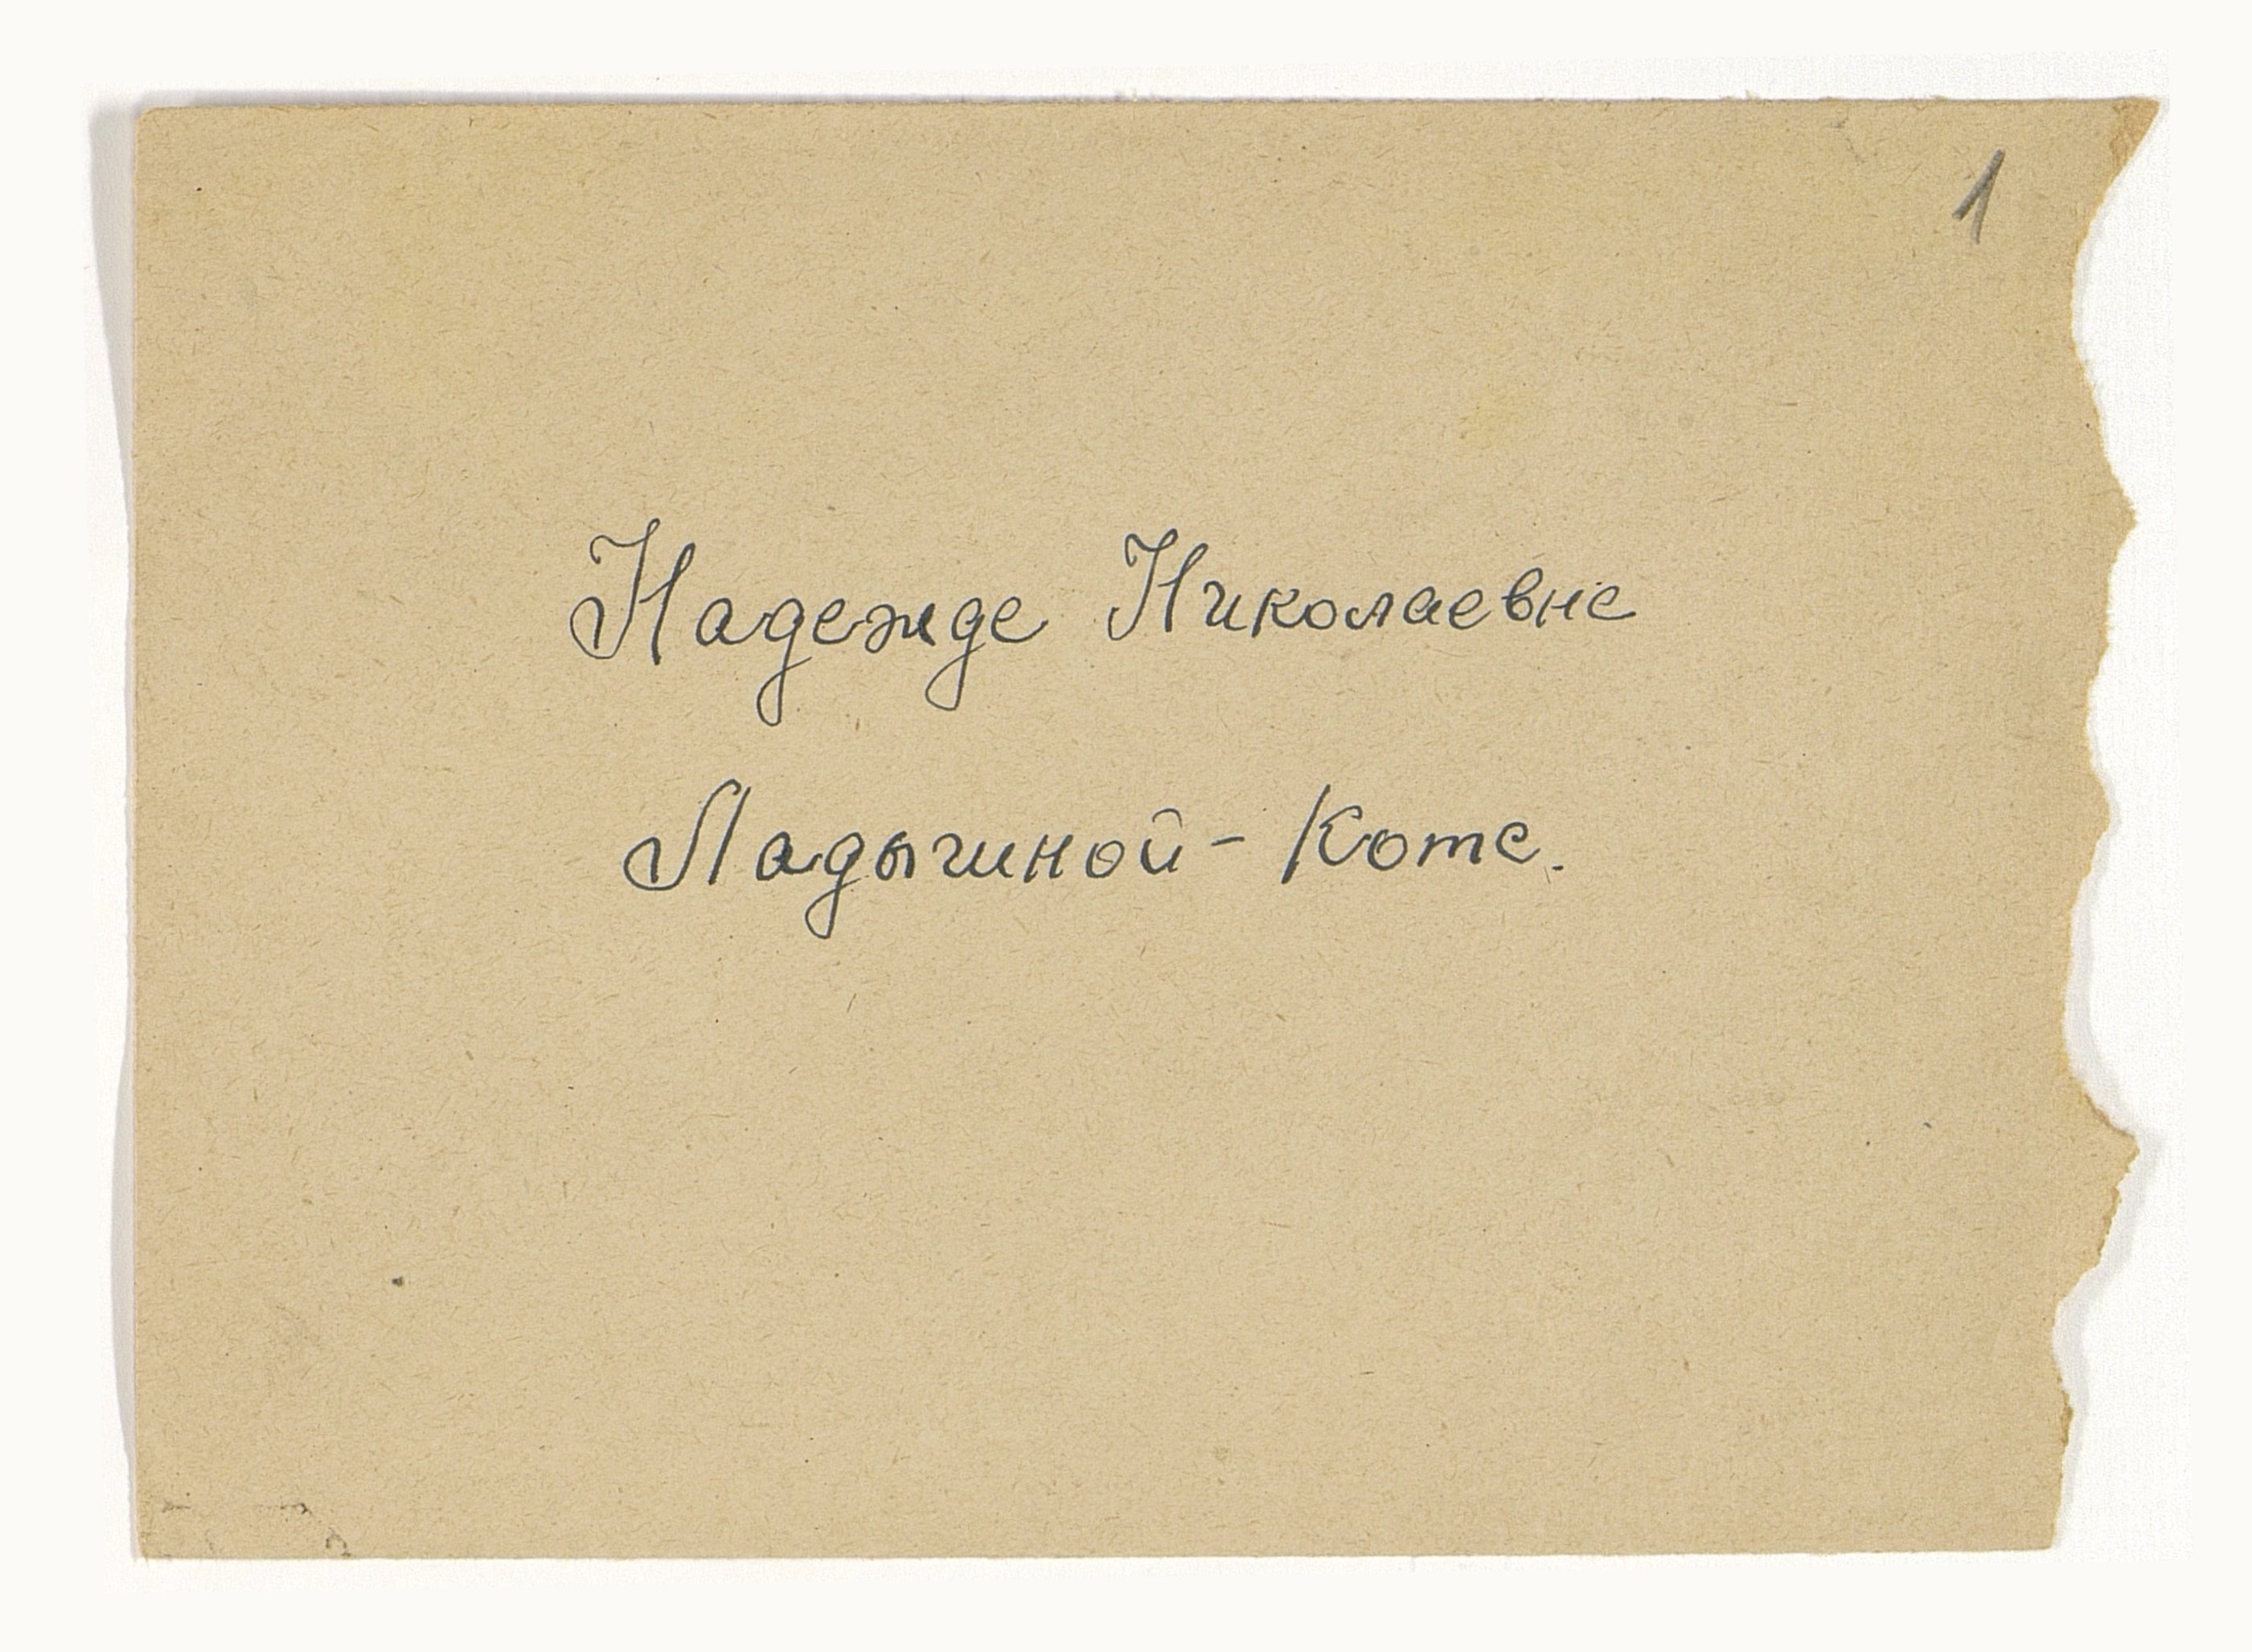 1
Надежде Николаевне
Ладыгиной-Коте.